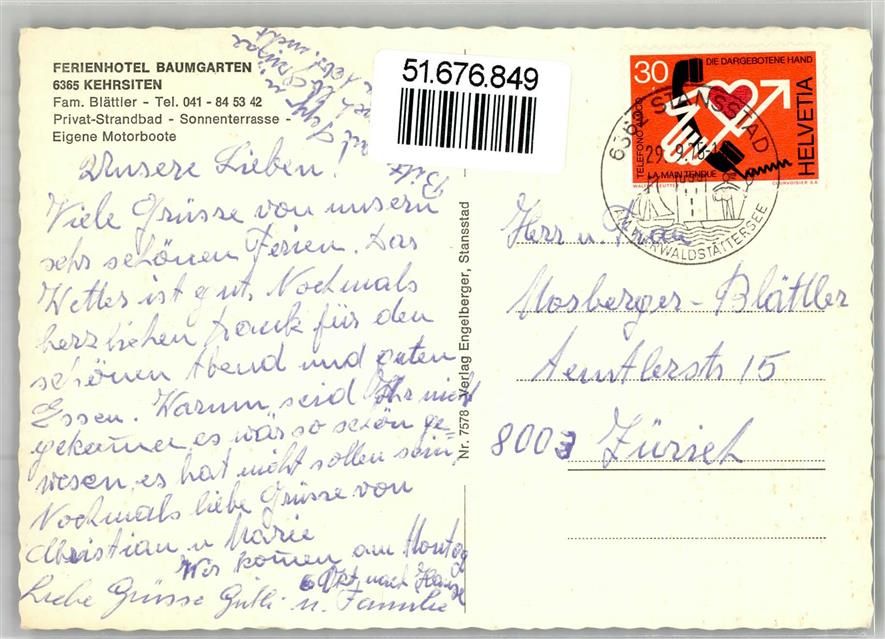 FERIENHOTEL BAUMGARTEN
6365 KEHRSITEN
Fam. Blättler - Tel. 041 - 84 53 42
Privat-Strandbad - Sonnenterrasse -
Eigene Motorboote
51.676.849
30
DIE DARGEBOTENE HAND
TELEFONO AMICO
LA MAIN TENDUE
HELVETIA
COURVOISIER S.A.
6362 STANSSTAD
29.9.75
AM VIERWALDSTÄTTERSEE
Unsere Lieben!
Viele Grüsse von unsern
sehr schönen Ferien. Das
Wetter ist gut. Nochmals
herzlichen Dank für den
schönen Abend und guten
Essen. Warum seid Ihr nicht
gekommen es wär so schön ge=
wesen, es hat nicht sollen sein,
Nochmals liebe Grüsse von
Christian u Marie
Wir komen am Montag
6 Okt. nach Hause
Liebe Grüsse Gütli u. Familie
Nr. 7578 - Verlag Engelberger, Stansstad
Herr u Frau
Mosberger-Blättler
Aemtlerstr 15
8003 Zürich